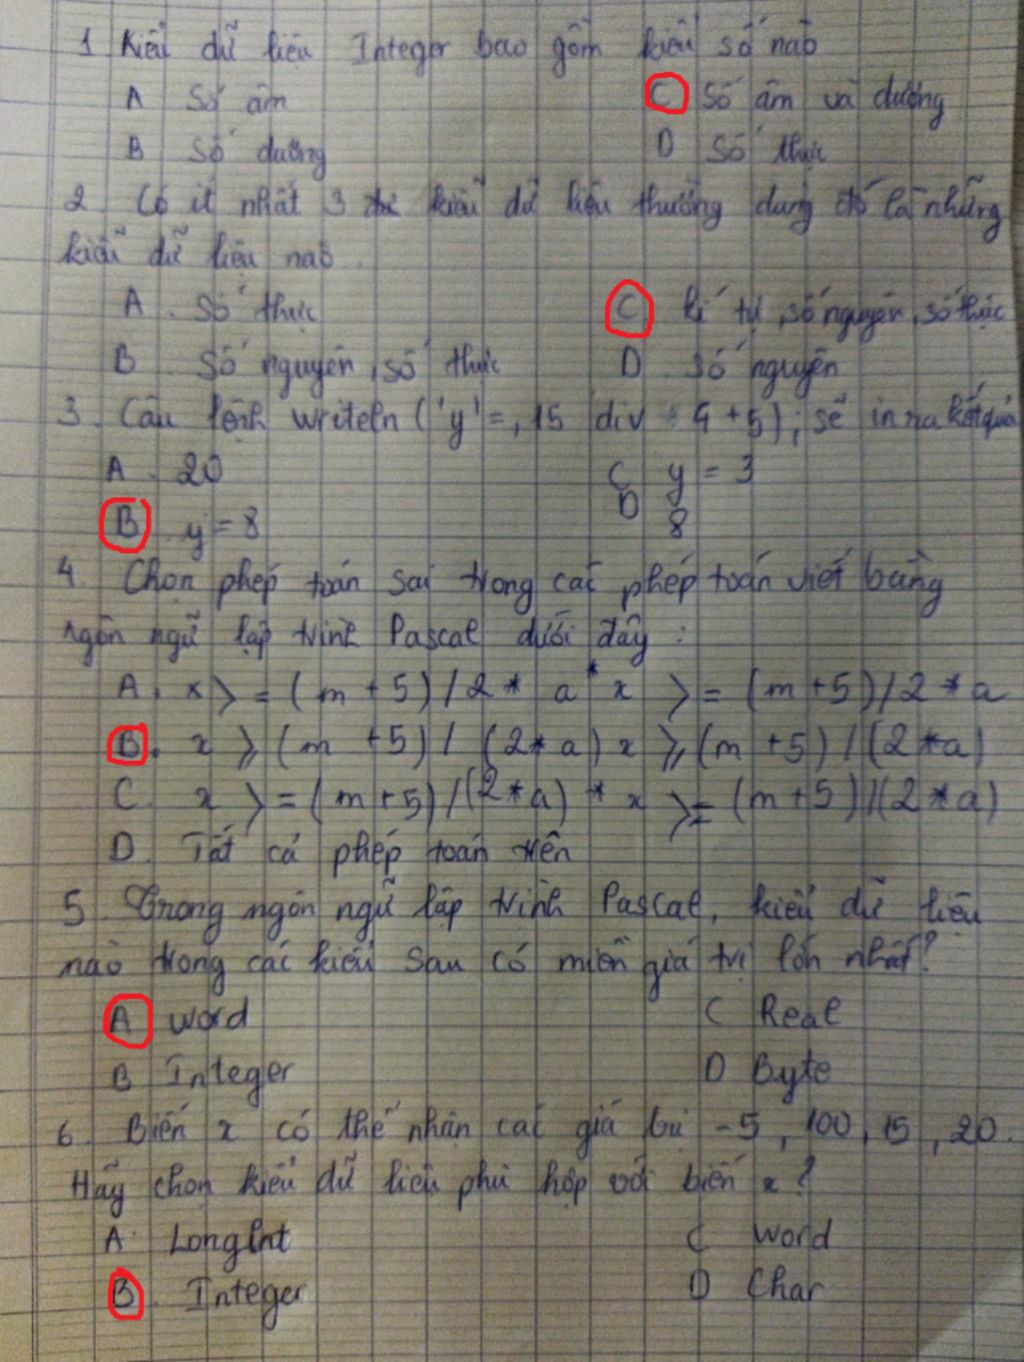 1 Kiểu dữ liệu Integer bao gồm kiểu số nào
A Số âm
C Số âm và dương
B Số dương
D Số thực
2 Có ít nhất 3 kiểu dữ liệu thường dùng đó là những
kiểu dữ liệu nào.
A. Số thực
C. kí tự, số nguyên, số thực
B. Số nguyên, số thực
D. Số nguyên
3. Câu lệnh writeln ('y'=, 15 div 4 + 5); sẽ in ra kết quả
A. 20
C y = 3
B. y = 8
D 8
4. Chọn phép toán sai trong các phép toán viết bằng
ngôn ngữ lập trình Pascal dưới đây:
A. x > = (m + 5) / 2 * a * x > = (m + 5) / 2 * a
B. x ⩾ (m + 5) / (2 * a) x ⩾ (m + 5) / (2 * a)
C. x > = (m + 5) / (2 * a) * x > = (m + 5) / (2 * a)
D. Tất cả phép toán trên
5. Trong ngôn ngữ lập trình Pascal, kiểu dữ liệu
nào trong các kiểu sau có miền giá trị lớn nhất?
A word
C Real
B Integer
D Byte
6. Biến x có thể nhận các giá -5, 100, 15, 20.
Hãy chọn kiểu dữ liệu phù hợp với biến x?
A. LongInt
C word
B. Integer
D Char